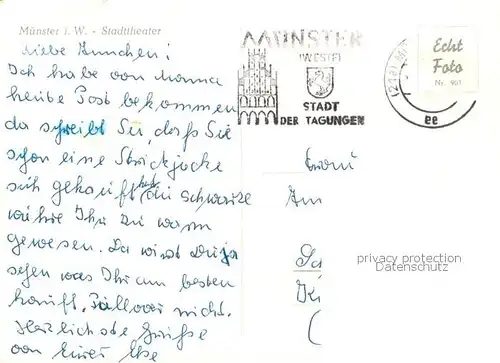 Münster i. W. - Stadttheater
Liebe Annchen!
Ich habe von Mama
heute Post bekommen
da schreibt Sie, daß Sie
schon eine Strickjacke
sich gekauft hat, die schwarze
wäre Ihr zu warm
gewesen. Da wirst Du ja
sehen was Ihr am besten
kauft. Pullover nicht.
Herzlichste Grüße
von Eurer
MÜNSTER
(WESTF)
STADT
DER TAGUNGEN
Echt
Foto
Nr. 901
(21a)
ee
Frau
privacy protection
Datenschutz